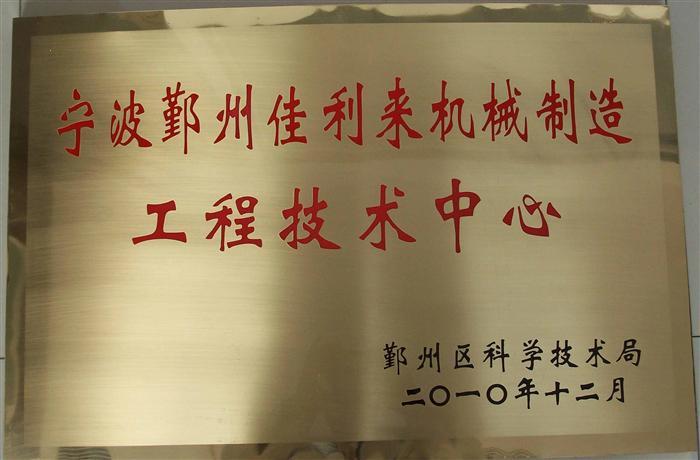 宁波鄞州佳利来机械制造
工程技术中心
鄞州区科学技术局
二〇一〇年十二月